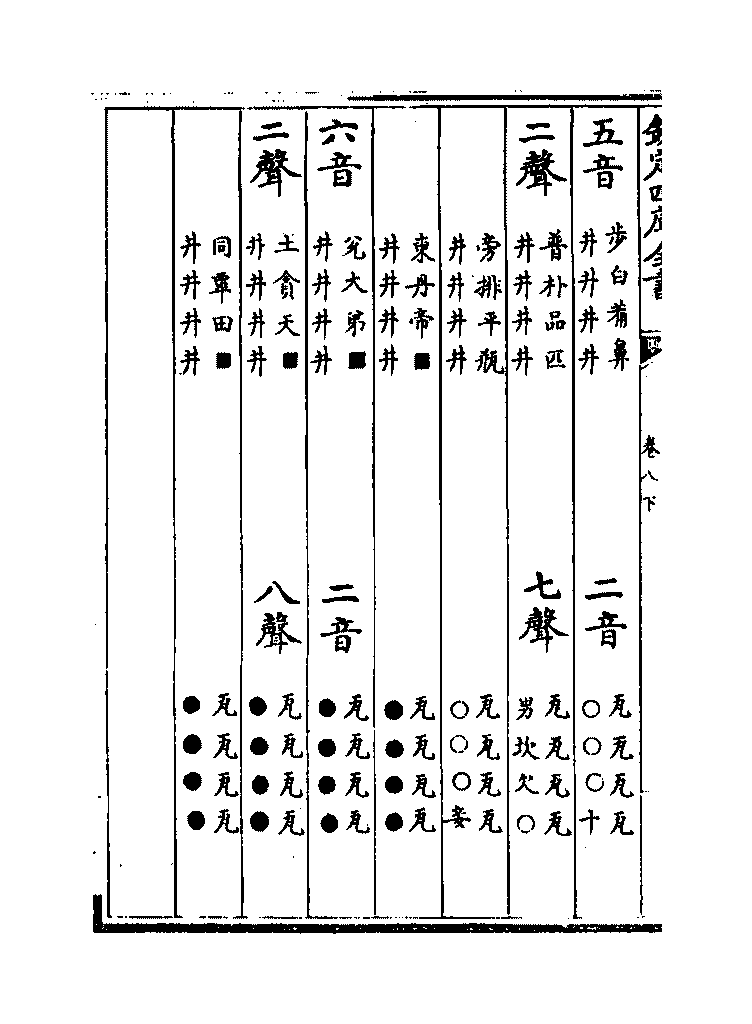 欽定四庫全書
卷八下
五音
步白葡鼻
井井井井
二音
瓦瓦瓦瓦
○○○十
二聲
普朴品匹
井井井井
七聲
瓦瓦瓦瓦
男坎欠○
旁排平瓶
井井井井
瓦瓦瓦瓦
○○○妾
東丹帝■
井井井井
瓦瓦瓦瓦
●●●●
六音
兌大弟■
井井井井
二音
瓦瓦瓦瓦
●●●●
二聲
土貪天■
井井井井
八聲
瓦瓦瓦瓦
●●●●
同覃田■
井井井井
瓦瓦瓦瓦
●●●●